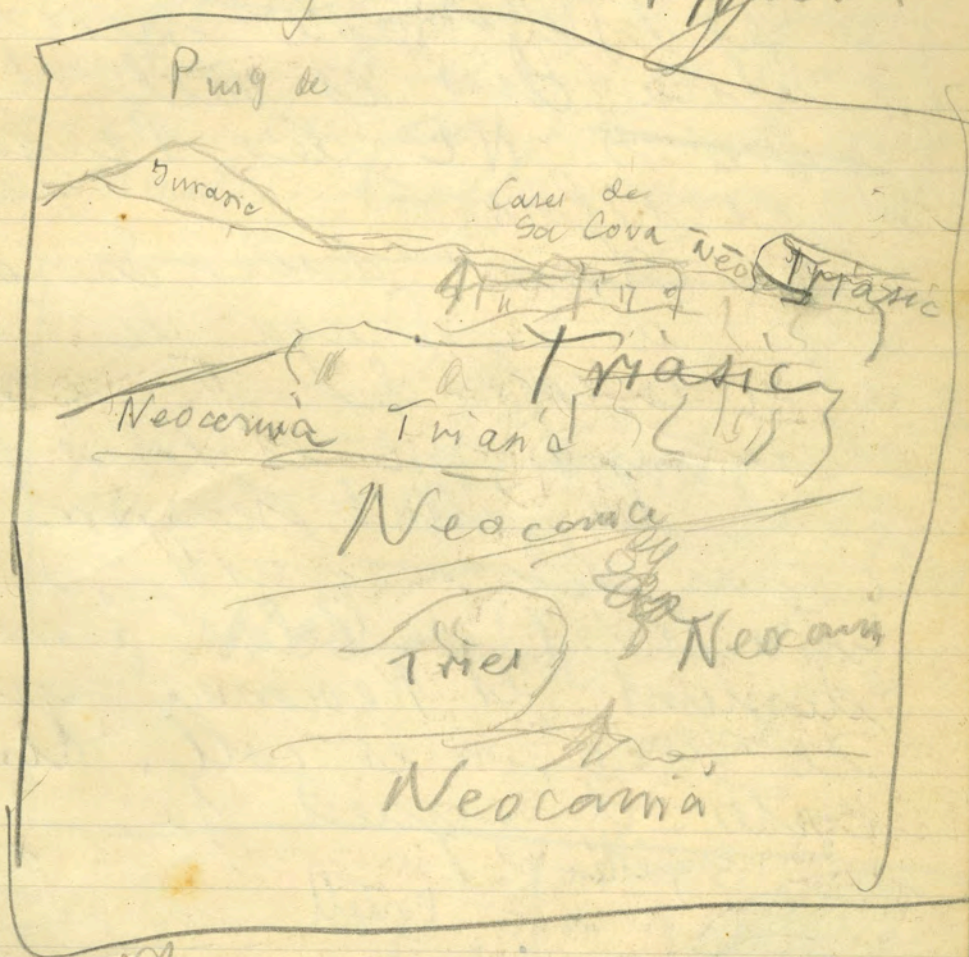 Puig de
Jurasic
Cases de
Sa Cova
Neo
Triasic
Triasic
Neocomià
Triasic
Neocomià
Trias
Neocomià
Neocomià